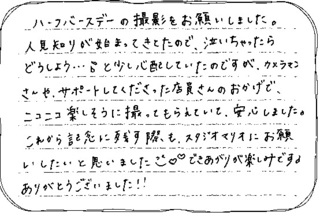 ハーフバースデーの撮影をお願いしました。
人見知りが始まってきてたので、泣いちゃったら
どうしよう…と少し心配していたのですが、カメラマン
さんや、サポートしてくださった店員さんのおかげで、
ニコニコ楽しそうに撮ってもらえていて、安心しました。
これからも記念に残す際も、スタジオマリオにお願
いしたいと思いました♡♡できあがりが楽しみです♪
ありがとうございました!!